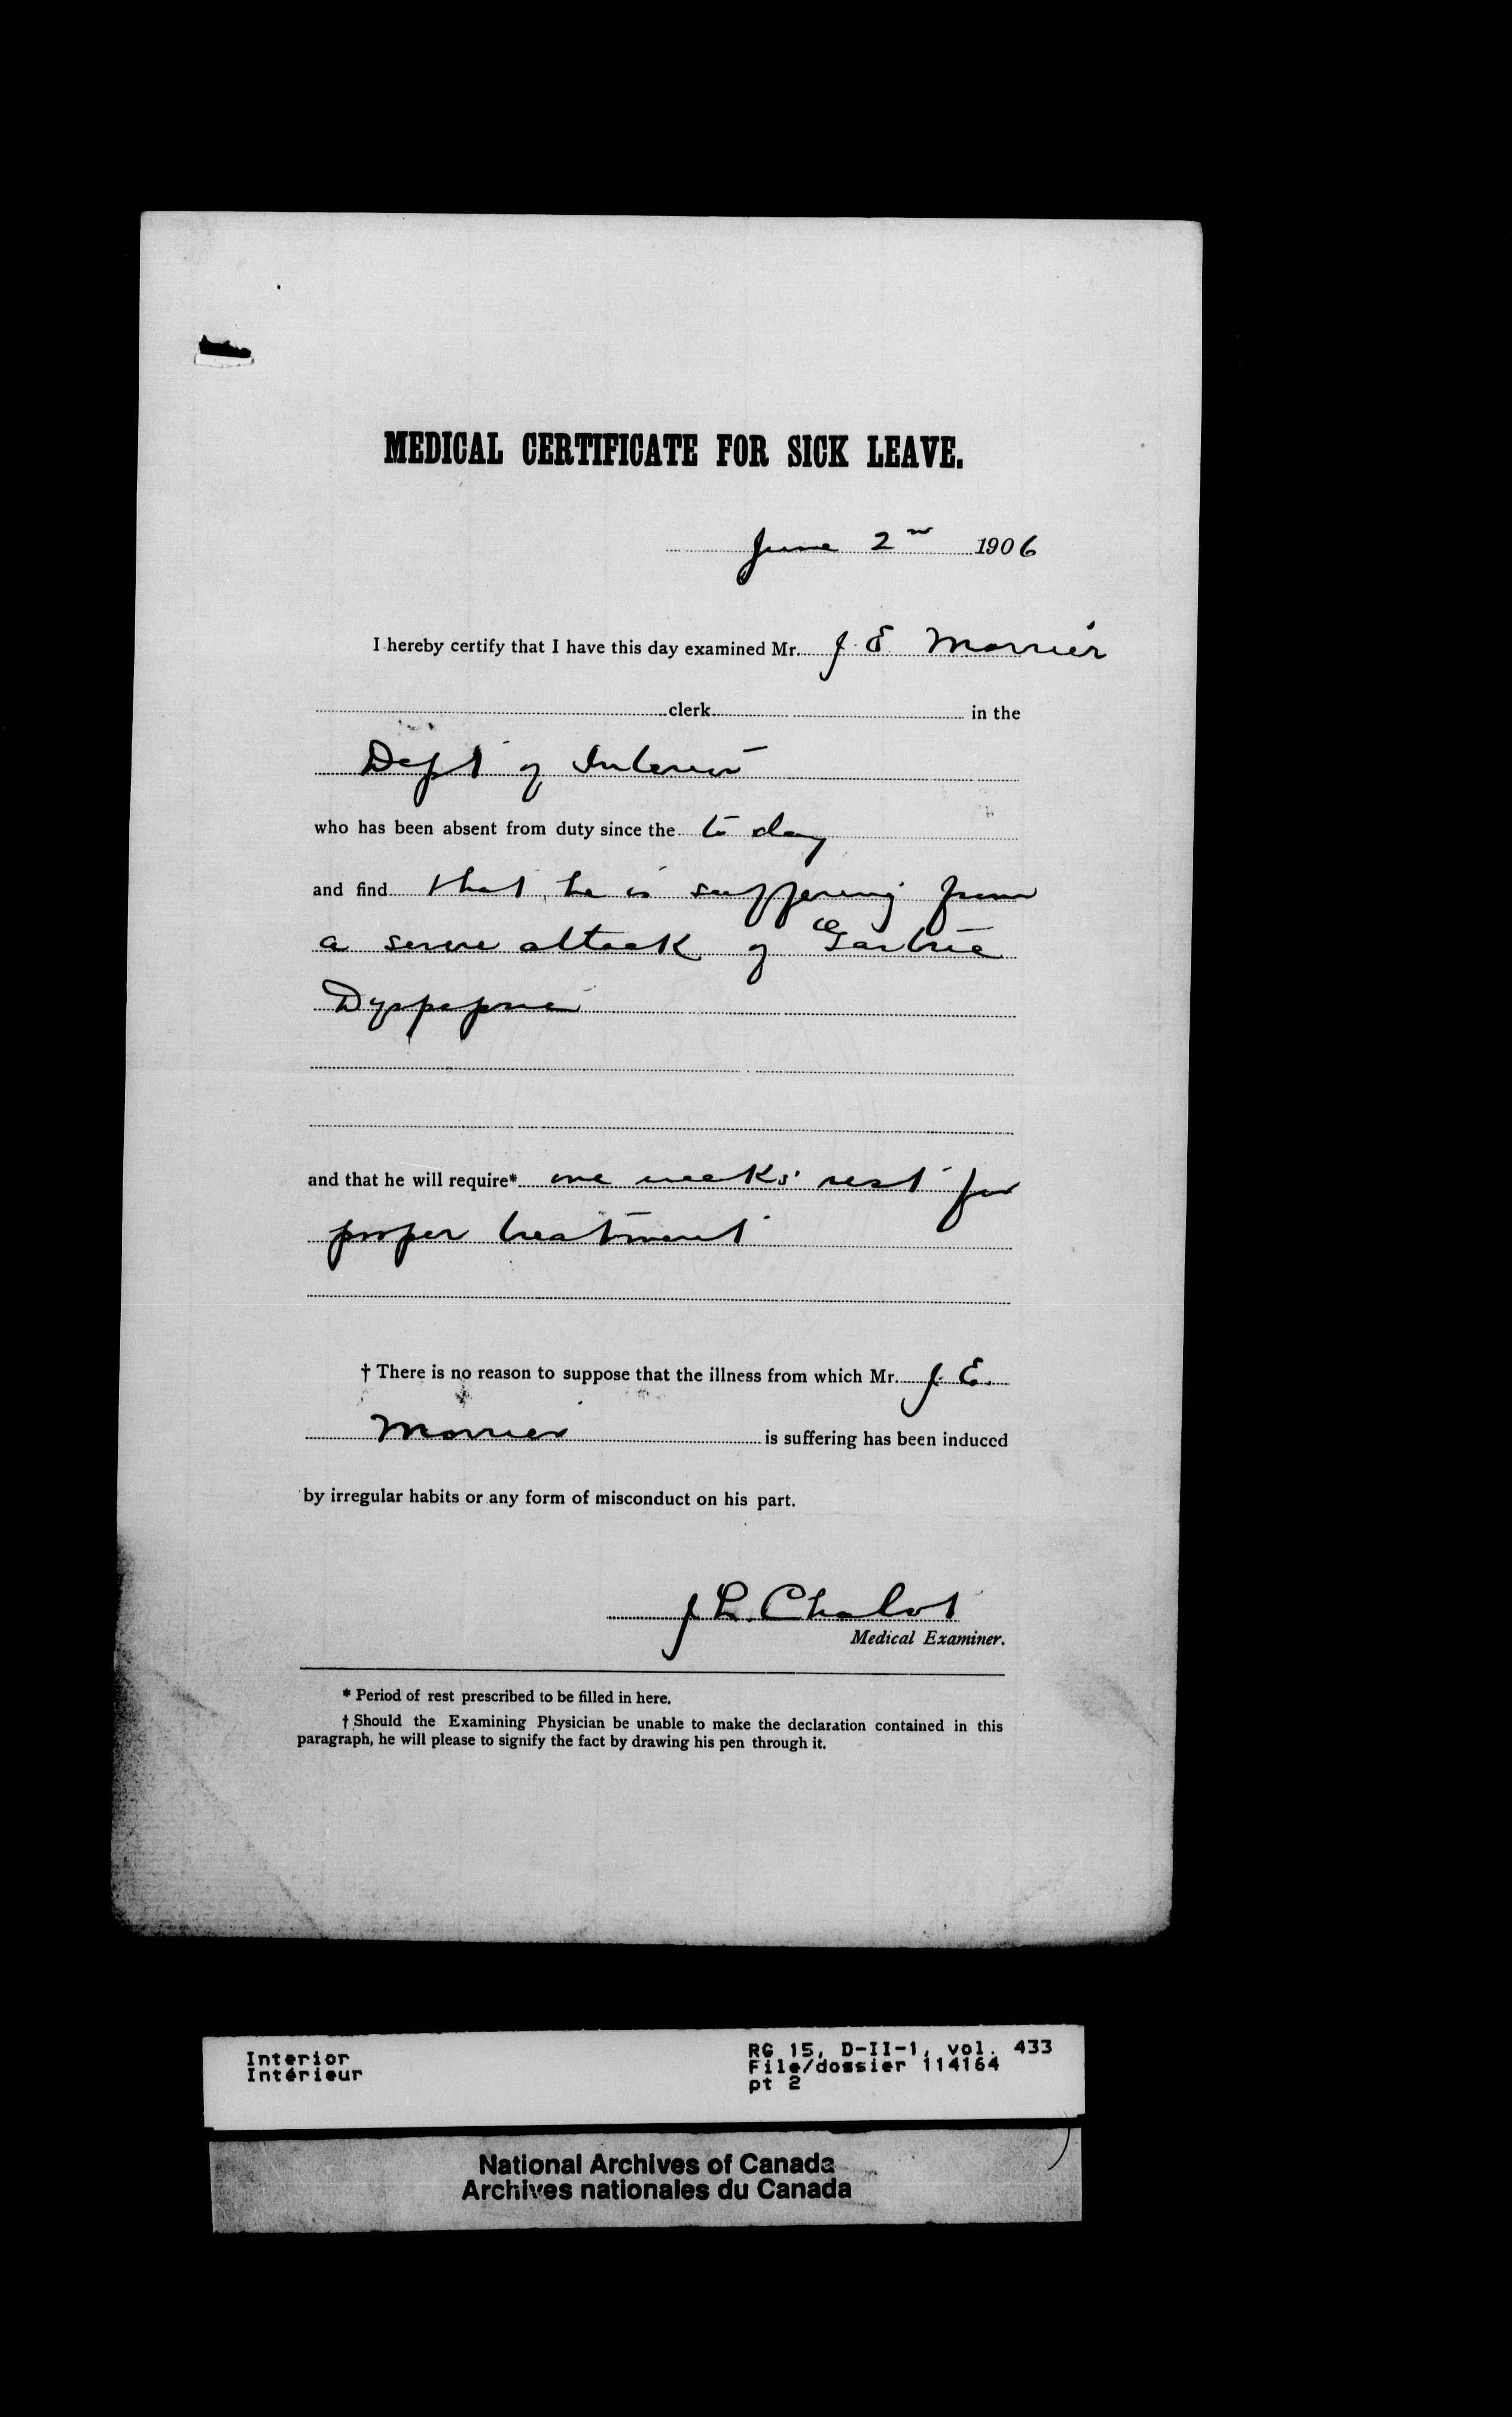 MEDICAL CERTIFICATE FOR SICK LEAVE.
June 2nd 1906
I hereby certify that I have this day examined Mr. J. E. Morrier
clerk in the
Dept of Interior
who has been absent from duty since the to day
and find that he is suffering from
a severe attack of Gastric
Dyspepsia
and that he will require* one weeks' rest for
proper treatment
† There is no reason to suppose that the illness from which Mr. J. E.
Morrier is suffering has been induced
by irregular habits or any form of misconduct on his part.
J L Chabot
Medical Examiner.
* Period of rest prescribed to be filled in here.
† Should the Examining Physician be unable to make the declaration contained in this
paragraph, he will please to signify the fact by drawing his pen through it.
Interior
Intérieur
RG 15, D-II-1, vol. 433
File/dossier 114164
pt 2
National Archives of Canada
Archives nationales du Canada